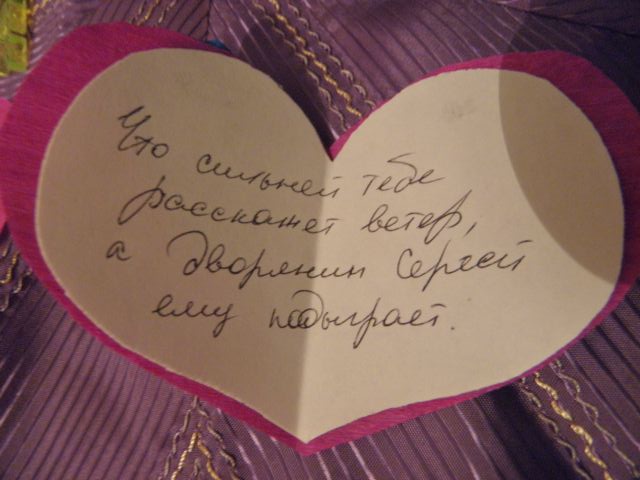 Что сильней тебе
расскажет ветер,
а дворянин Сергей
ему подыграет.